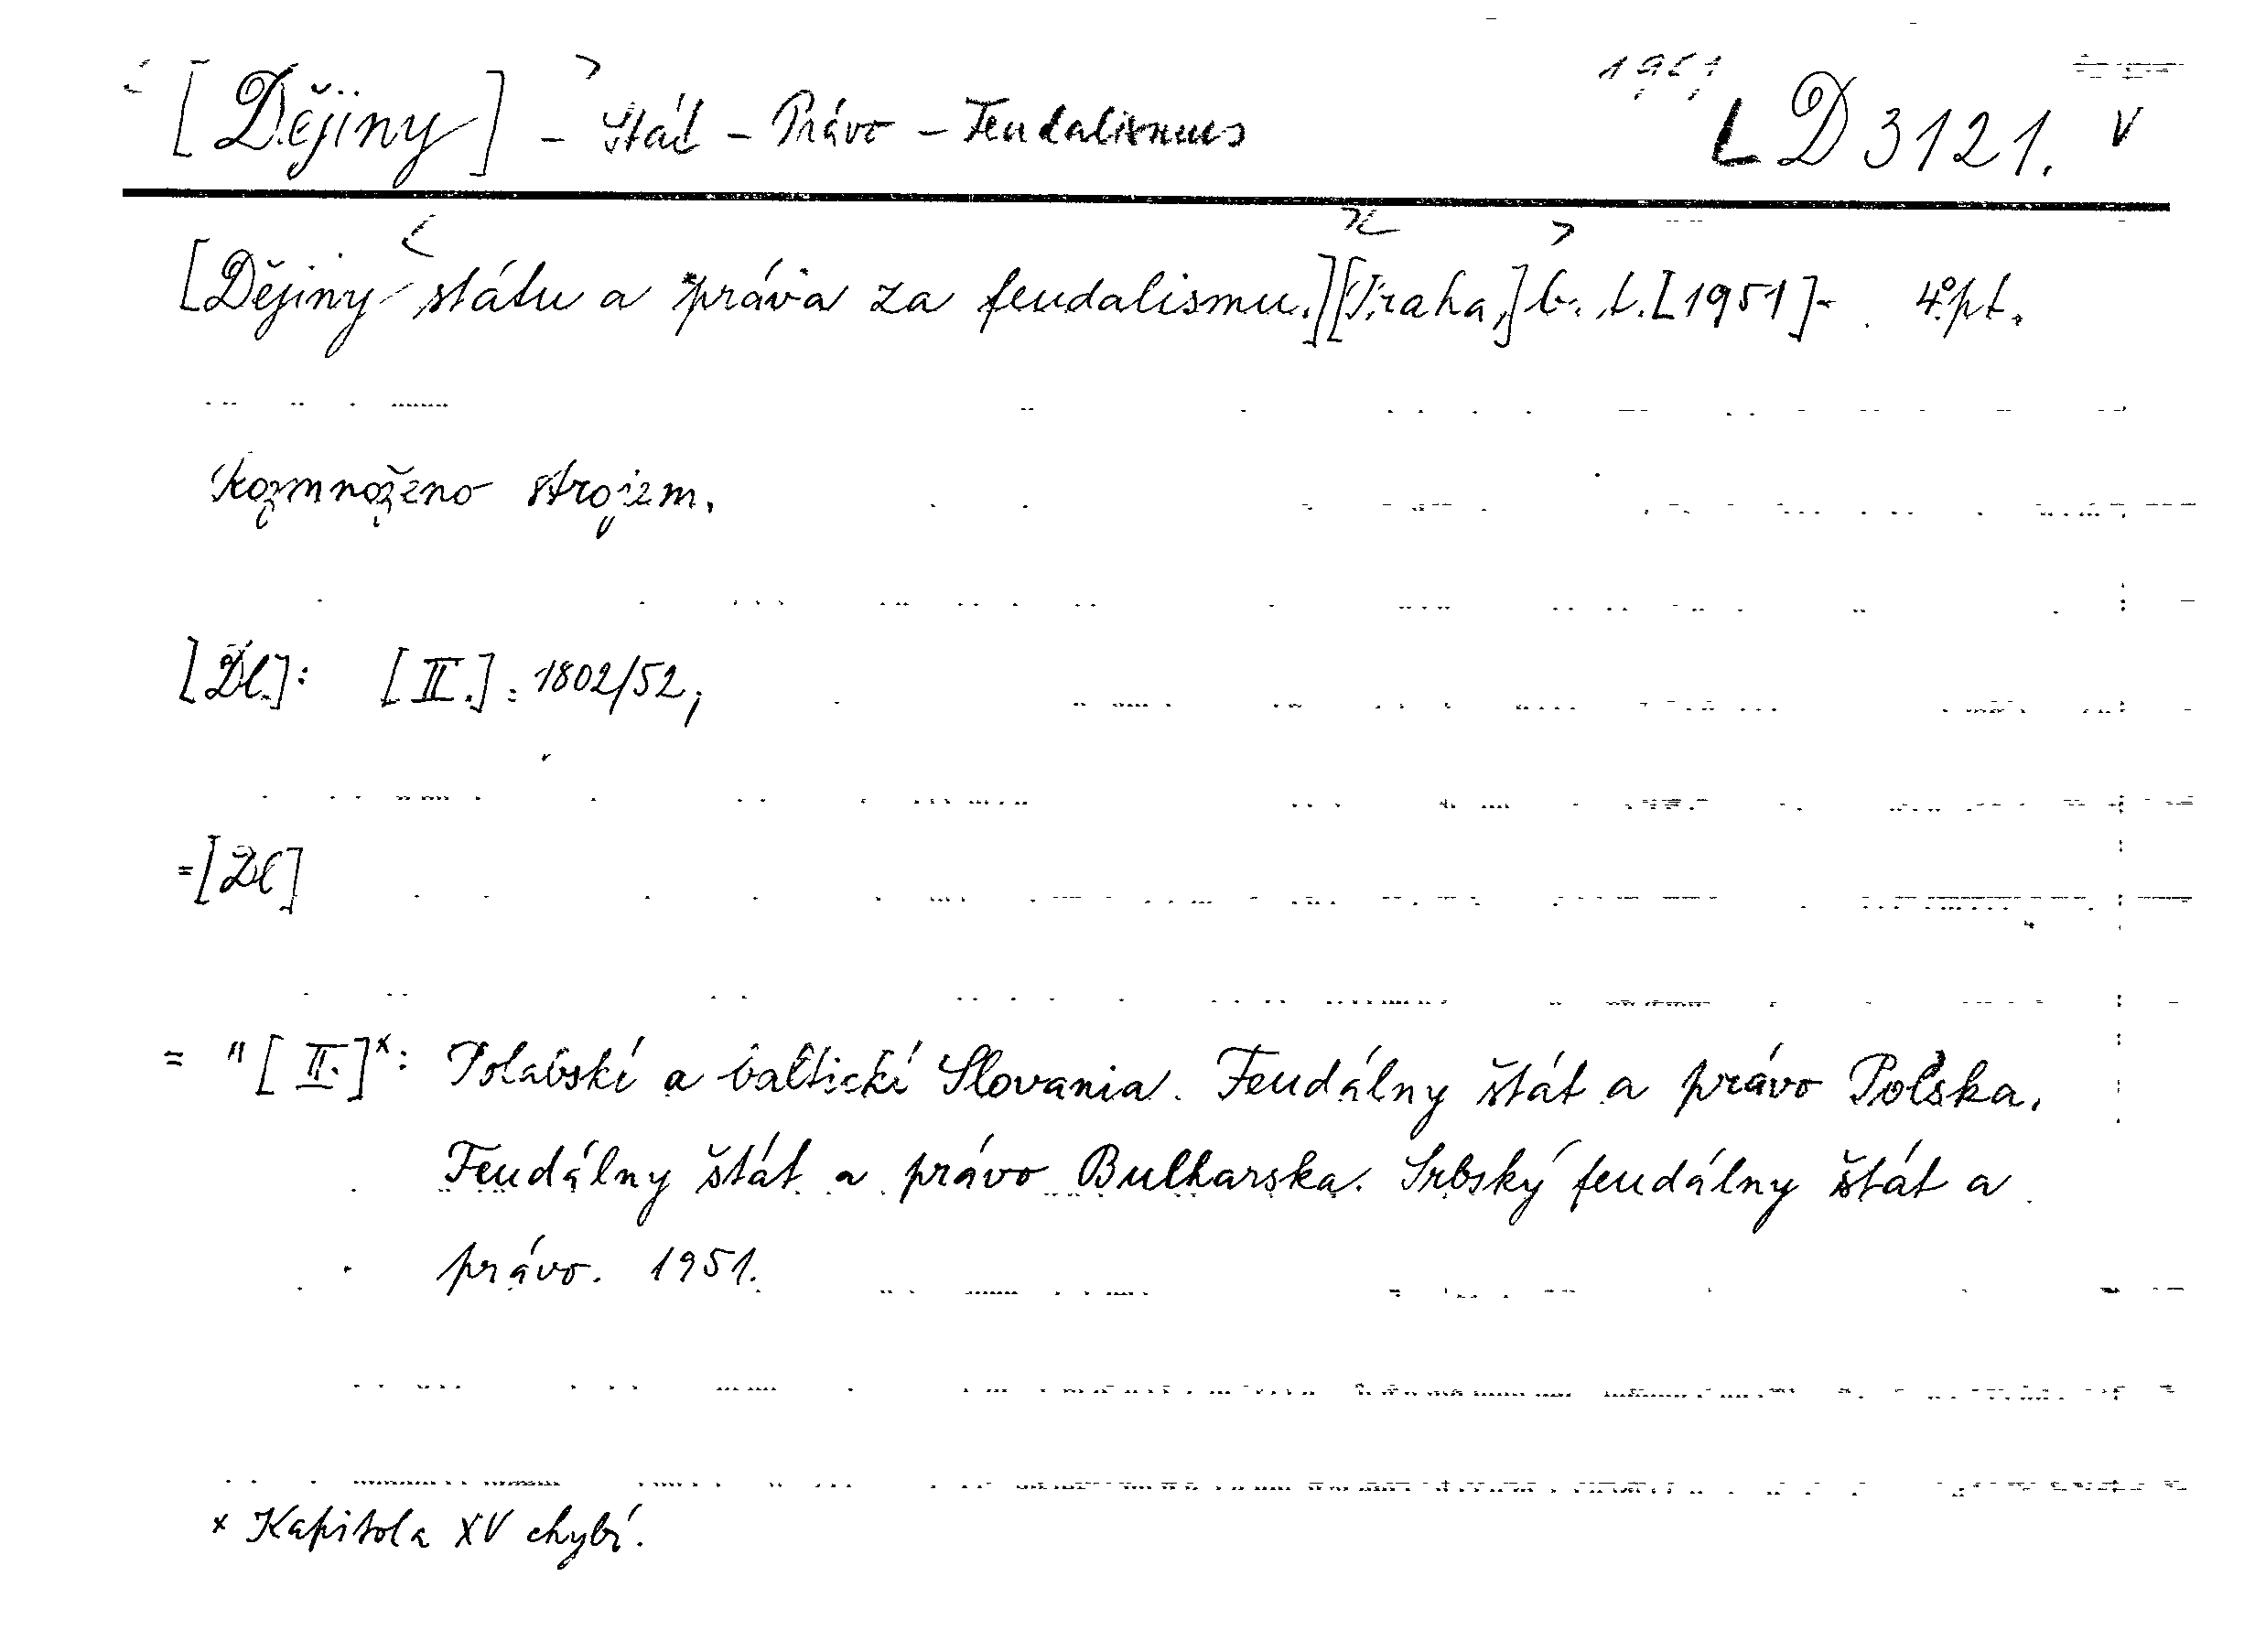 [Dějiny] - Stát - Právo - Feudalismus 1951 LD 3121. V
[Dějiny státu a práva za feudalismu.][Praha,] b. t. [1951]- 4° pt.
Rozmnoženo strojem.
[Díl.]: [II.]: 1802/52;
=[Díl]
= " [II.]ˣ: Polabskí a baltickí Slovania. Feudálny štát a právo Poľska.
Feudálny štát a právo Bulharska. Srbský feudálny štát a
právo. 1951.
x Kapitola XV chybí.